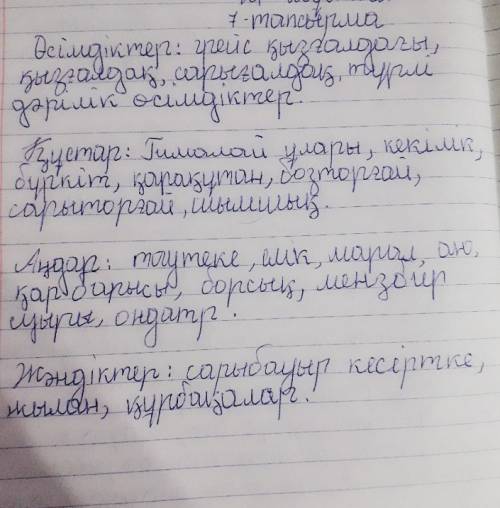 7-тапсырма
Өсімдіктер: грейс қызғалдағы,
қызғалдақ, сарығалдақ, түрлі
дәрілік өсімдіктер.
Құстар: Гималай ұлары, кекілік,
бүркіт, қарақұтан, бозторғай,
сарыторғай, шымшық.
Аңдар: таутеке, елік, марал, аю,
қар барысы, борсық, мензбир
суыры, ондатр.
Жәндіктер: сарыбауыр кесіртке,
жылан, құрбақалар.